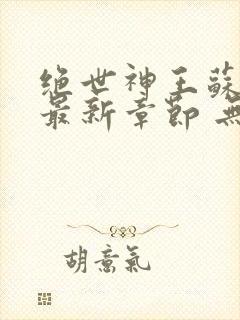 绝世神王蘇
最新章節 無
胡意氣